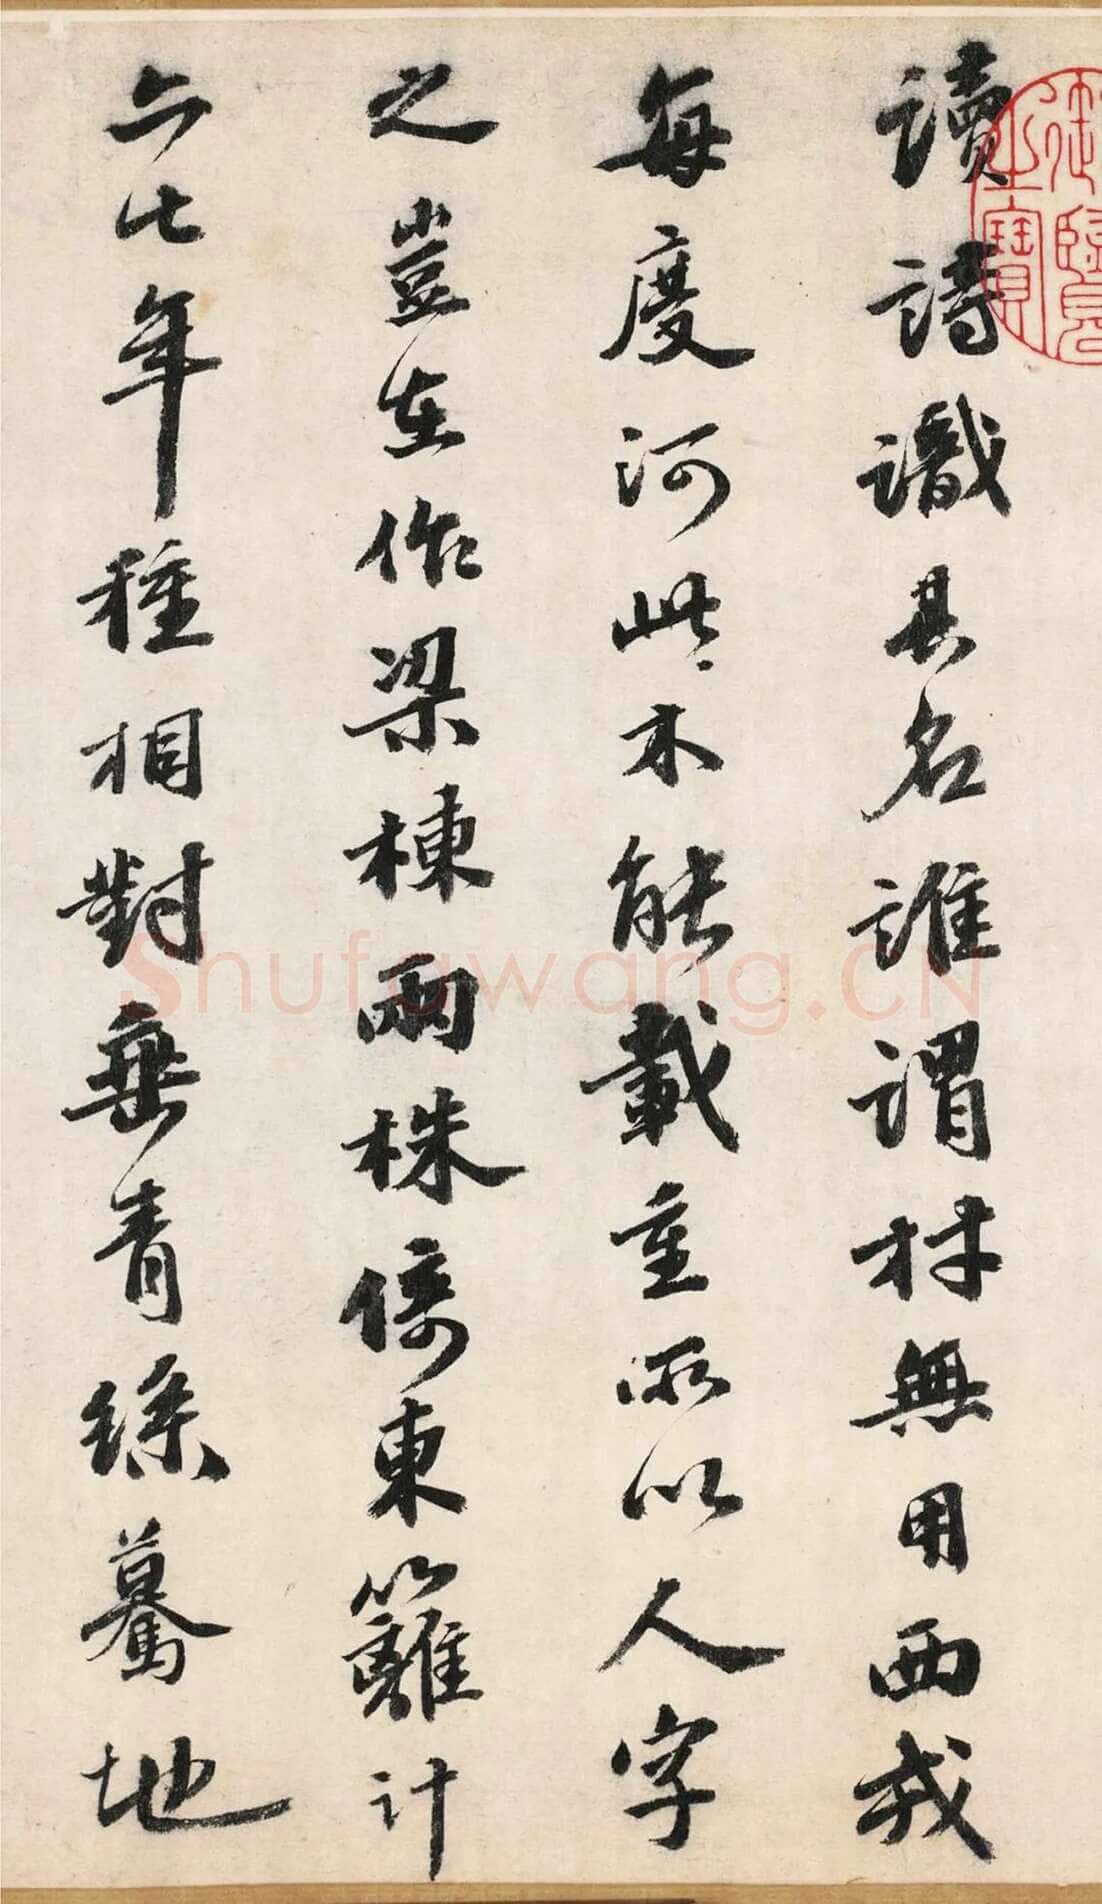 讀詩識其名誰謂材無用西戎
每度河此木能載重所以人字
之豈在作梁棟兩株倚東籬計
六七年種相對垂青驀地
御覽
之寶
Shufawang.CN